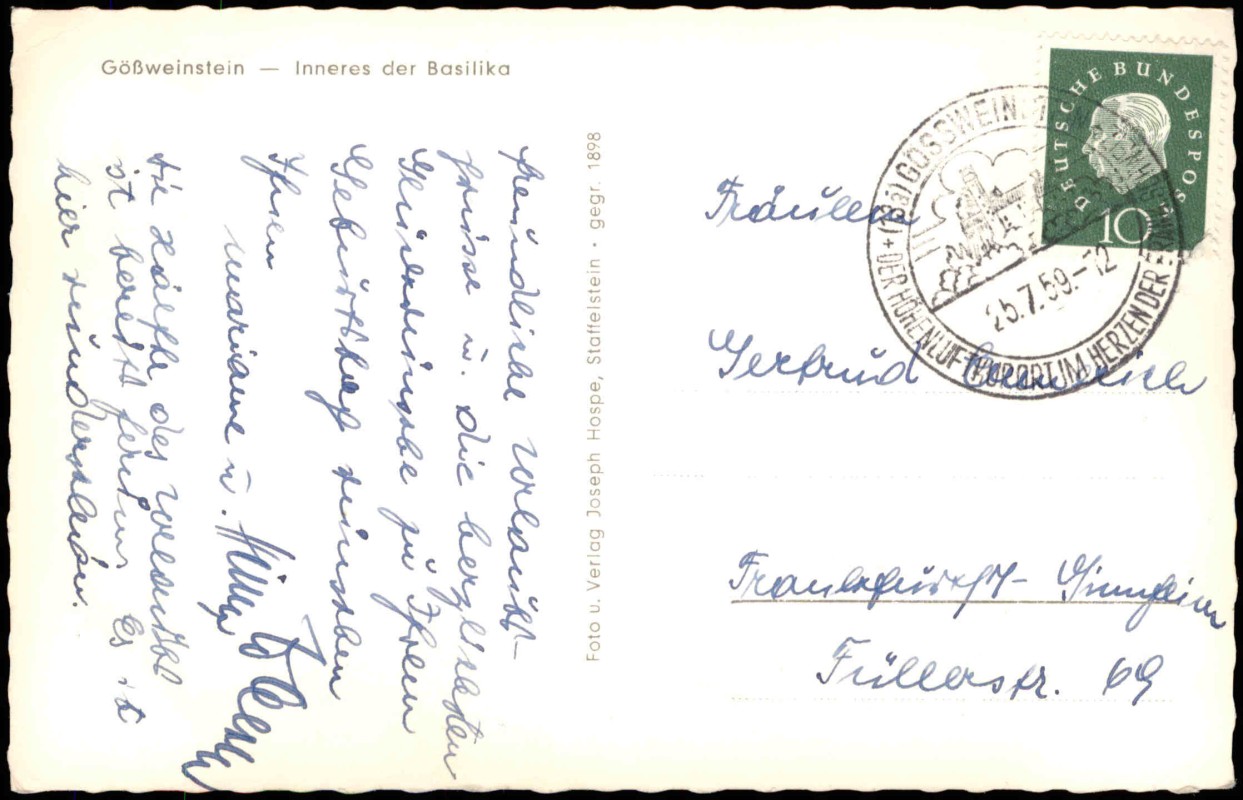 Gößweinstein — Inneres der Basilika
Freundliche Urlaubs-
grüsse u. die herzlichsten
Glückwünsche zu Ihrem
Geburtstag wünschen
Ihnen
Marianne u.
Die Hälfte des Urlaubs
ist bereits herum. Es ist
hier wunderschön.
Foto u. Verlag Joseph Hospe, Staffelstein · gegr. 1898
DEUTSCHE BUNDESPOST
10
(13a) GÖSSWEINSTEIN
25.7.59.-12
DER HÖHENLUFTKURORT IM HERZEN DER
Fräulein
Gertrud
Frankfurt/M- Ginnheim
Füllerstr. 69